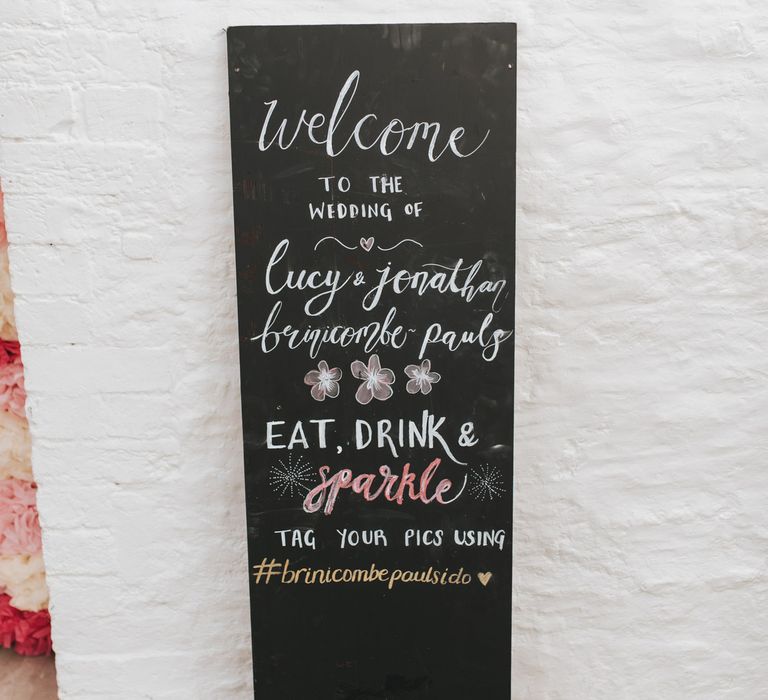 welcome
TO THE
WEDDING OF
lucy & jonathan
brinicombe-pauls
EAT, DRINK &
sparkle
TAG YOUR PICS USING
#brinicombepaulsido